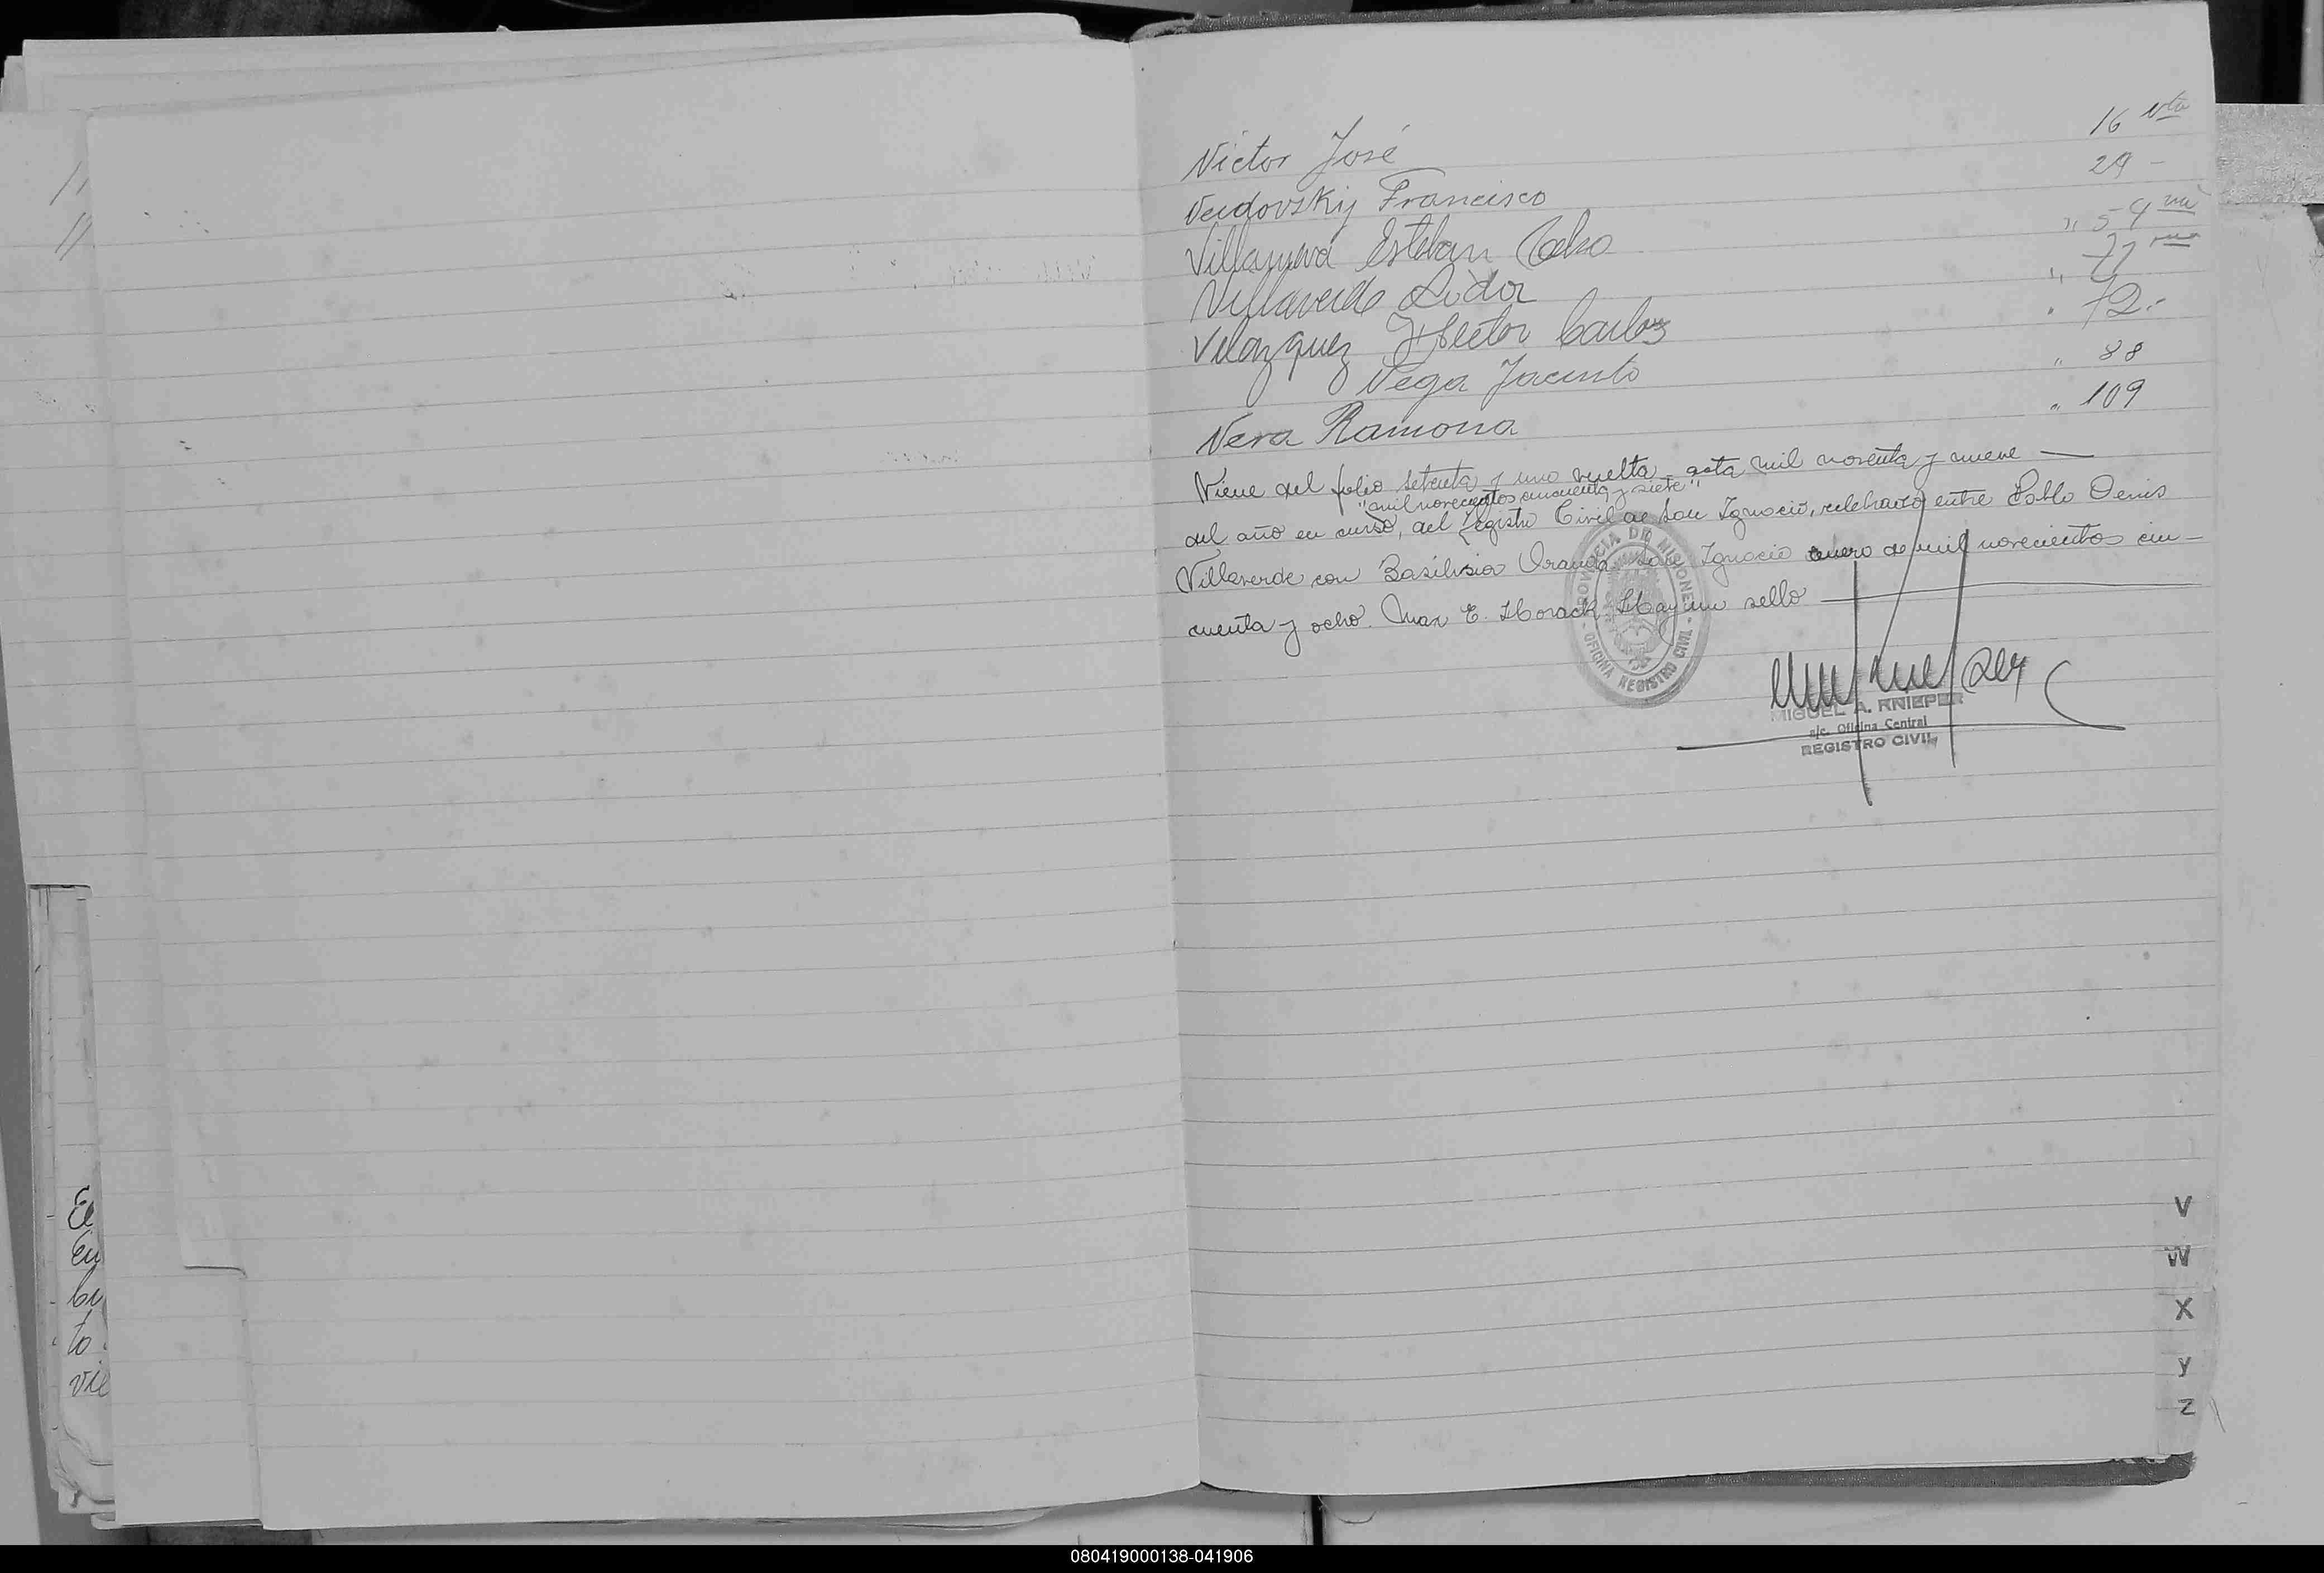 Victor José 16 vta
Veidovskij Francisco 29 -
Villanueva Esteban Celso " 54 vta
Villaverde Lidor " 71 vta
Velazquez Hector Carlos " 72.-
Vega Jacinto " 88
Vera Ramona " 109
Viene del folio setenta y uno vuelta - acta mil noventa y nueve —
"mil novecientos cincuenta y siete"
del año en curso, del Registro Civil de San Ignacio, celebrado entre Pablo Denis
Villaverde con Basilisia Aranda San Ignacio enero de mil novecientos cin-
cuenta y ocho. Max E. Horack Hay un sello
PROVINCIA DE MISIONES
- OFICINA REGISTRO CIVIL -
MIGUEL A. KNIEPER
a/c. Oficina Central
REGISTRO CIVIL
El
En
bu
to
vie
V
W
X
Y
Z
080419000138-041906